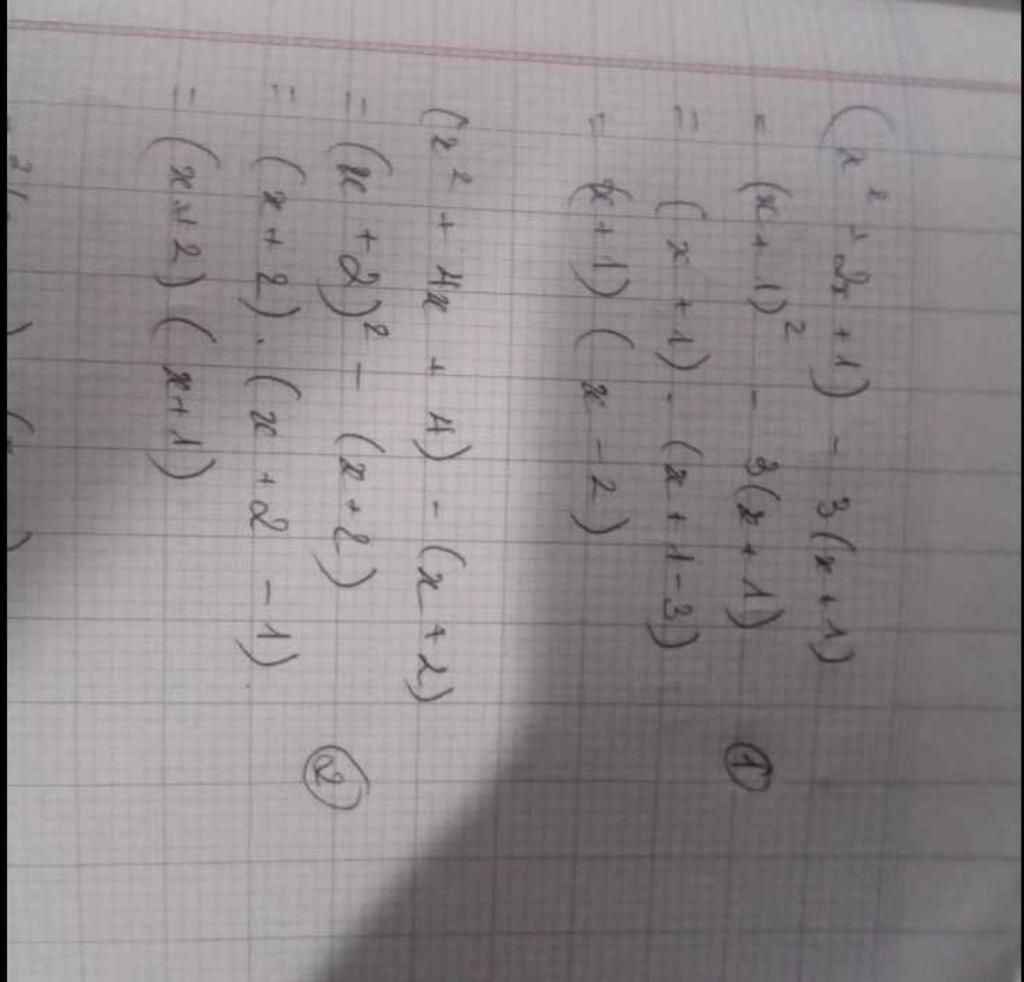 (x² + 2x + 1) - 3(x + 1)
= (x + 1)² - 3(x + 1)
= (x + 1) . (x + 1 - 3)
= (x + 1) (x - 2)
①
(x² + 4x + 4) - (x + 2)
= (x + 2)² - (x + 2)
= (x + 2) . (x + 2 - 1)
= (x + 2) (x + 1)
②